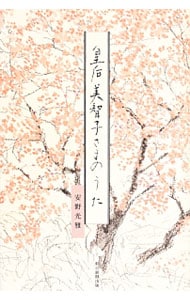 皇后美智子さまのうた
安野光雅
朝日新聞出版